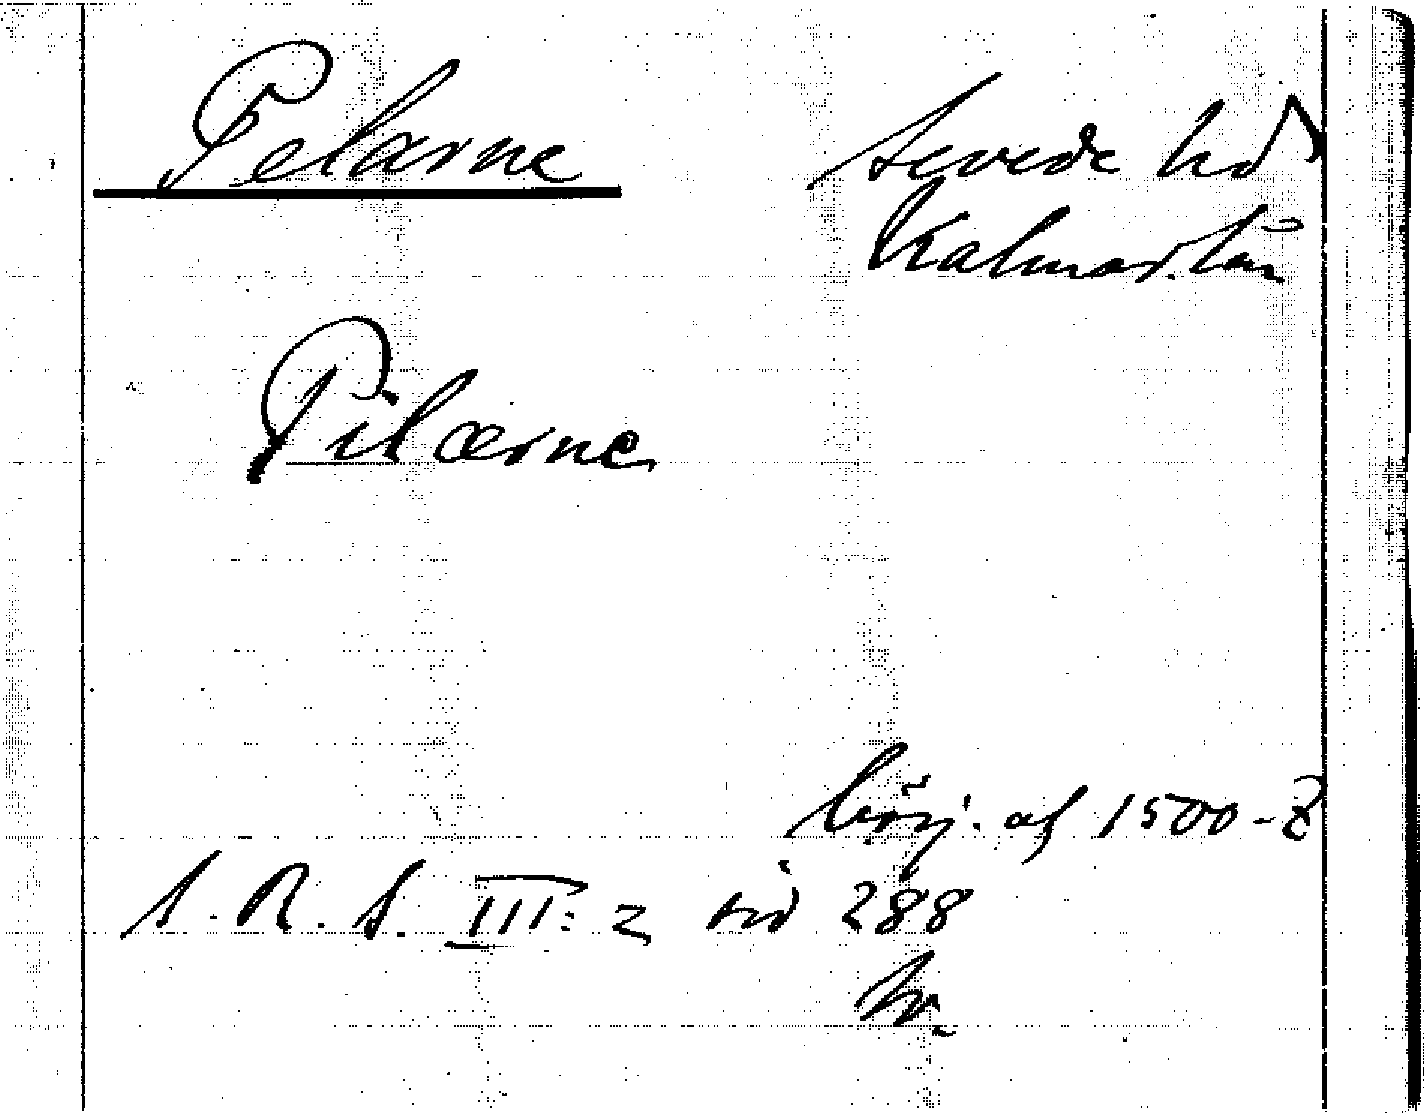 Pelarne Sevede hd
Kalmar. län
Pilærne
börj. af 1500-t
S. R. S. III: 2 sid 288